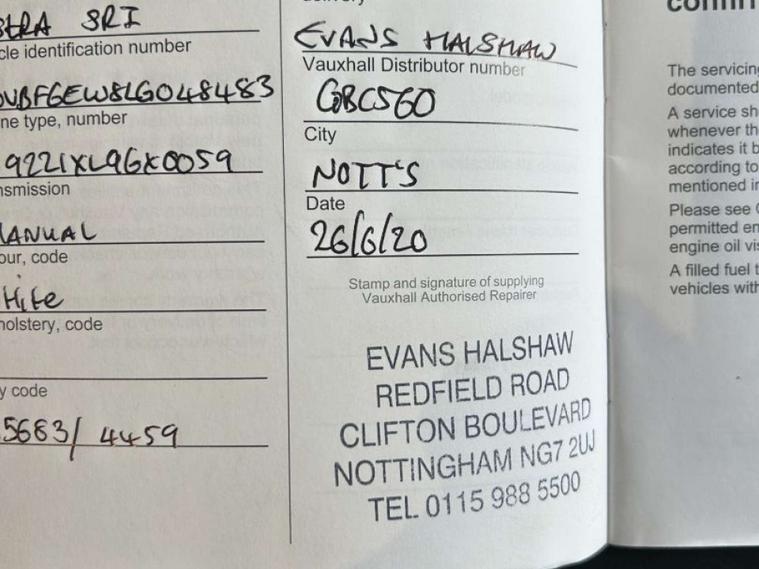 STRA SRI
cle identification number
0VBFGEW8LG048483
ne type, number
9221XL9GX0059
nsmission
MANUAL
our, code
Hite
holstery, code
y code
5683/ 4459
EVANS HALSHAW
Vauxhall Distributor number
GBC560
City
NOTT'S
Date
26/6/20
Stamp and signature of supplying
Vauxhall Authorised Repairer
EVANS HALSHAW
REDFIELD ROAD
CLIFTON BOULEVARD
NOTTINGHAM NG7 2UJ
TEL 0115 988 5500
The servicing
documented
A service sh
whenever th
indicates it b
according to
mentioned in
Please see
permitted en
engine oil vis
A filled fuel t
vehicles with